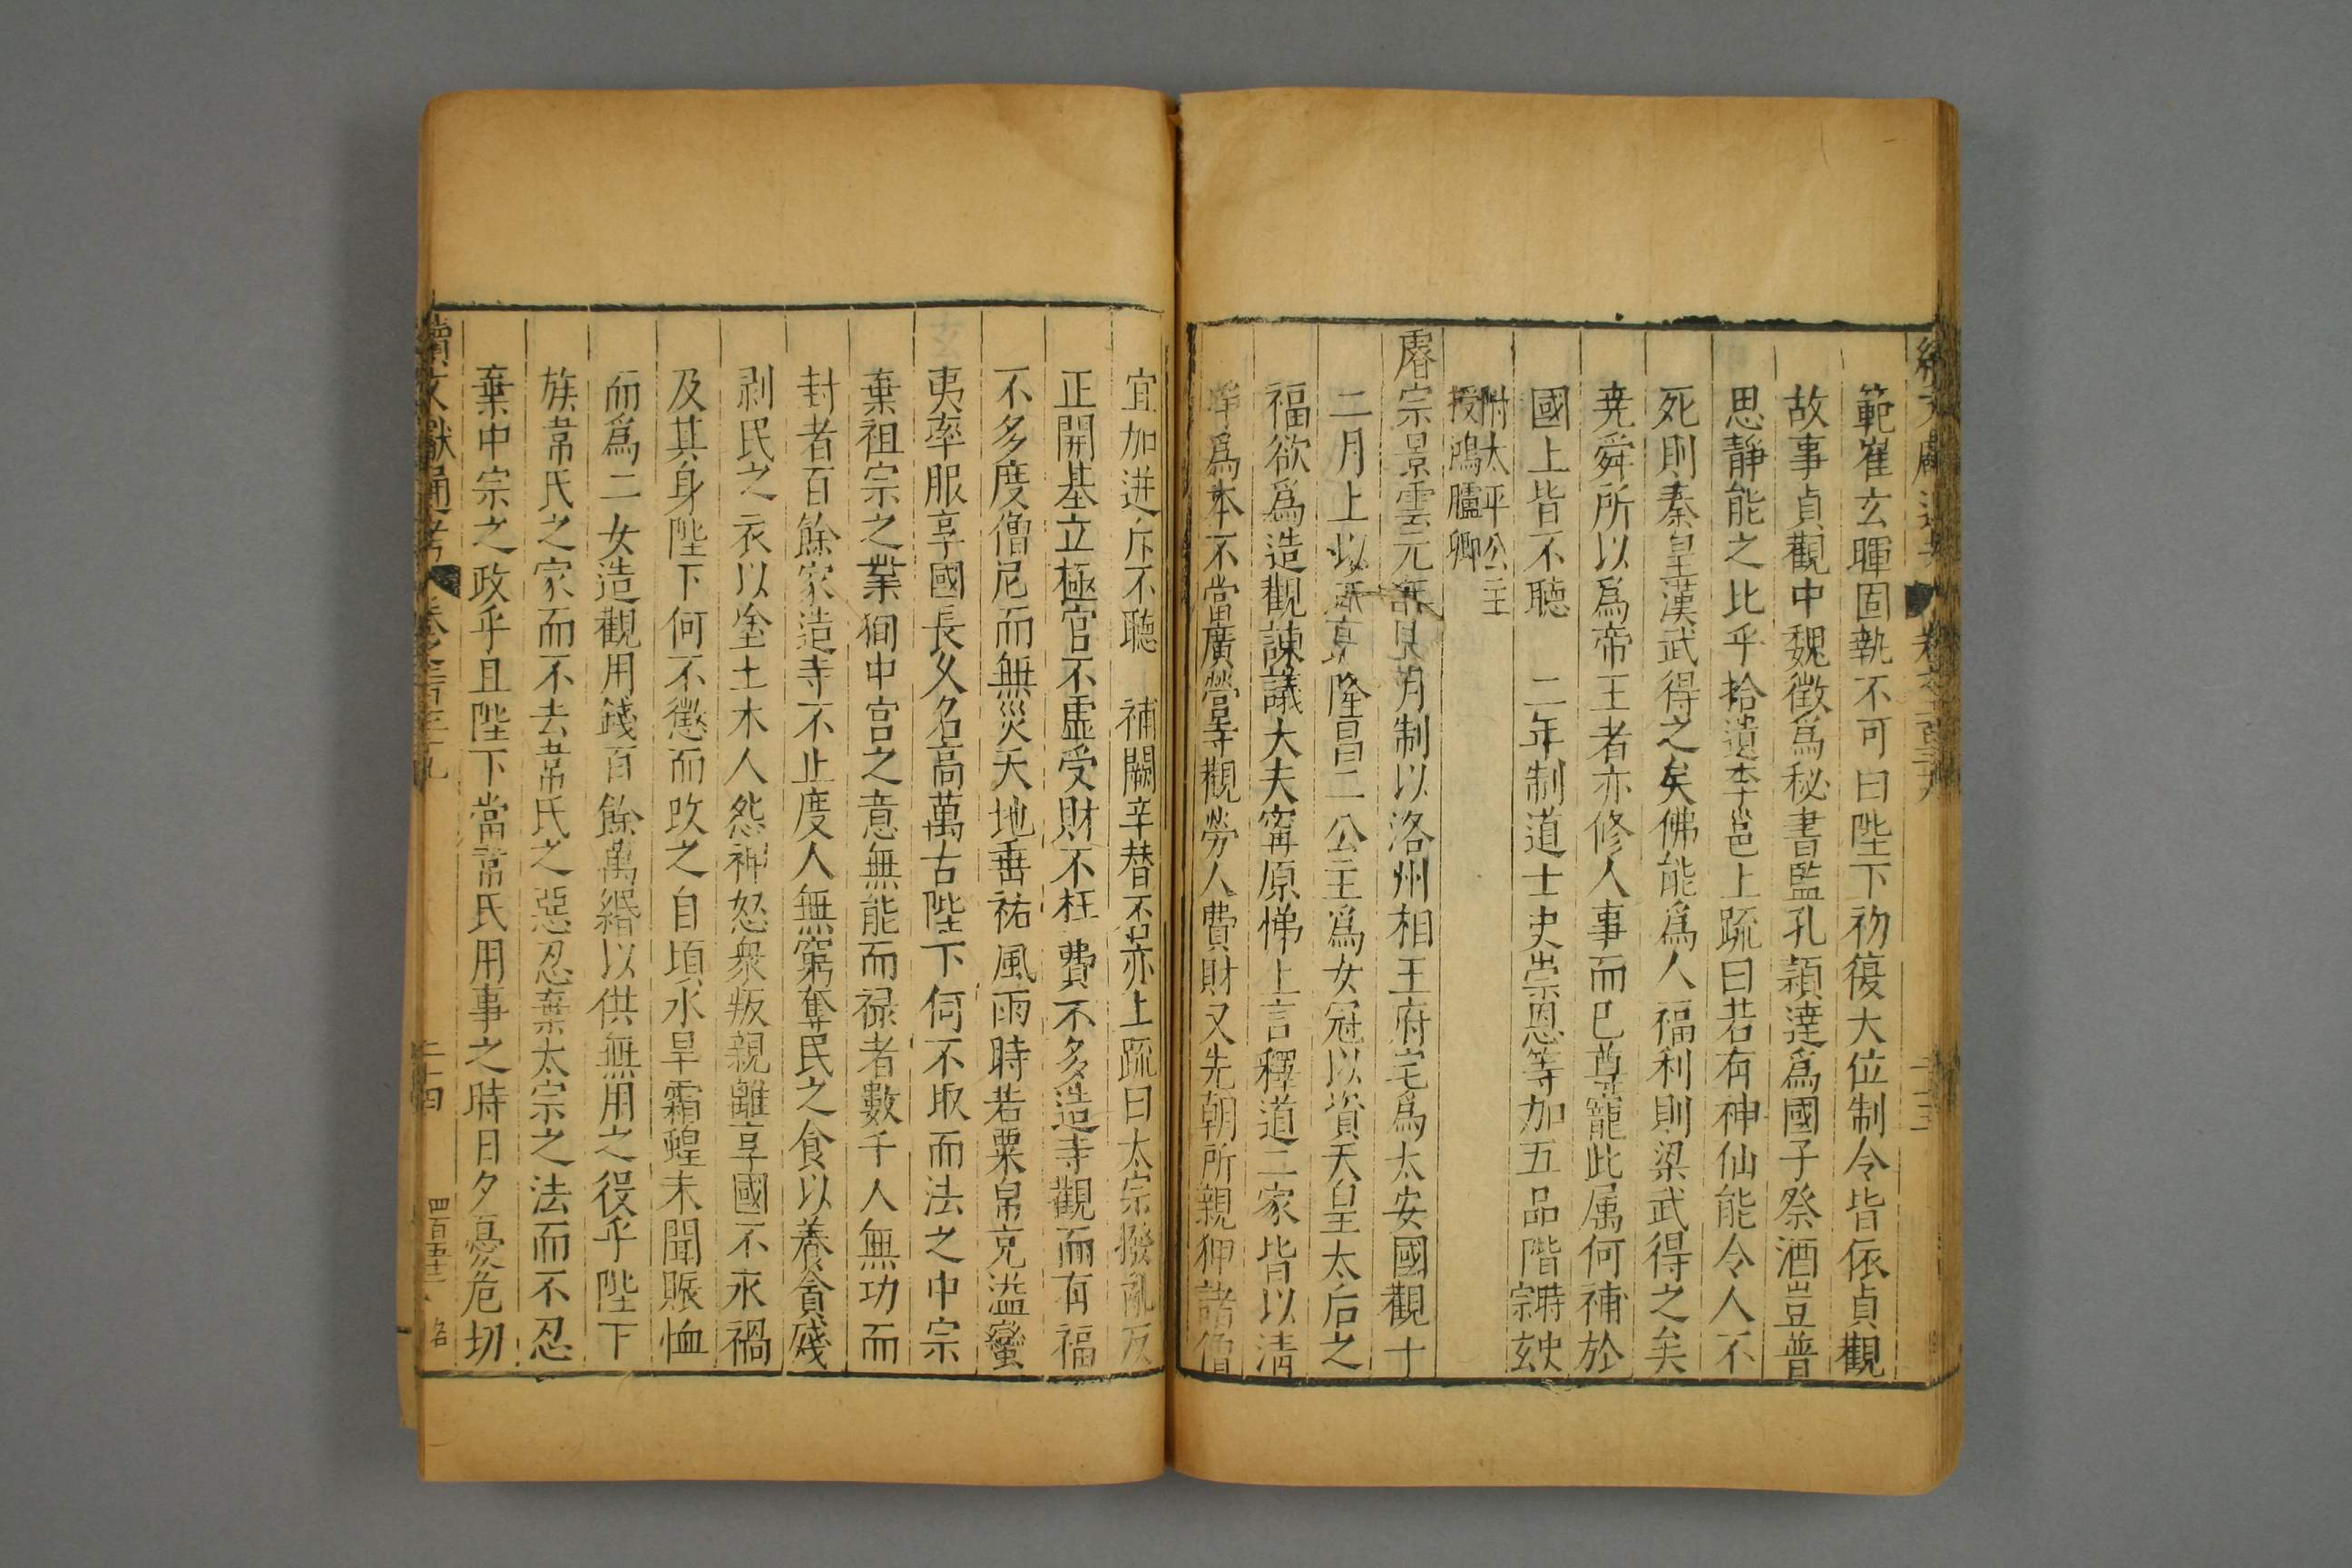 範崔玄暉固執不可曰陛下初復大位制令皆依貞觀
故事貞觀中魏徵為秘書監孔穎達為國子祭酒豈普
思靜能之比乎拾遺李邕上疏曰若有神仙能令人不
死則秦皇漢武得之矣佛能為人福利則梁武得之矣
堯舜所以為帝王者亦修人事而已尊寵此属何補於
國上皆不聽　二年制道士史崇恩等加五品階時史崇玄
附太平公主
授鴻臚卿
睿宗景雲元年月制以洛州相王府宅為太安國觀十
二月上以隆昌二公主為女冠以資天皇太后之
福欲為造觀諫議大夫甯原悌上言釋道二家皆以清
為本不當廣營寺觀勞人費財又先朝所親狎諸僧
宜加進斥不聽　補闕辛替否亦上疏曰太宗撥亂反
正開基立極官不虛受財不枉費不多造寺觀而有福
不多度僧尼而無災天地垂祐風雨時若粟帛充溢蠻
夷率服享國長久名高萬古陛下何不取而法之中宗
棄祖宗之業徇中宮之意無能而禄者數千人無功而
封者百餘家造寺不止度人無窮奪民之食以養貪殘
剥民之衣以塗土木人怨神怒衆叛親離享國不永禍
及其身陛下何不懲而改之自頃水旱霜蝗未聞賑恤
而為二女造觀用錢百餘萬緡以供無用之役乎陛下
族常氏之家而不去常氏之惡忍棄太宗之法而不忍
棄中宗之政乎且陛下當常氏用事之時日夕憂危切
續文獻通考　卷之二百三十九　二十四　四百五十二　名